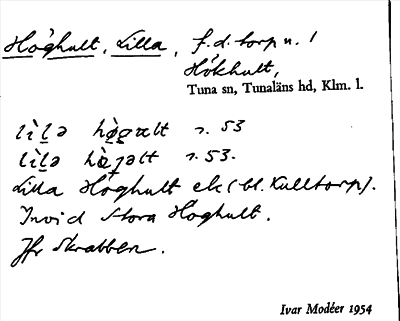 Höghult, Lilla, f.d. torp u. /
Hökhult,
Tuna sn, Tunaläns hd, Klm. l.
lìl̥ə hø̀gɐlt s. 53
lìl̥ə hø̀gəlt s. 53.
Lilla Höghult ek (bl. Kulltorp).
Invid Stora Höghult.
Jfr Skrabben.
Ivar Modéer 1954